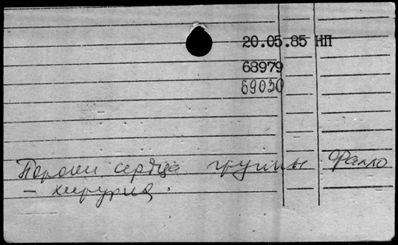 20.05.85 НП
68979
69030
Пороки сердца группы Фалло
– хирургия.